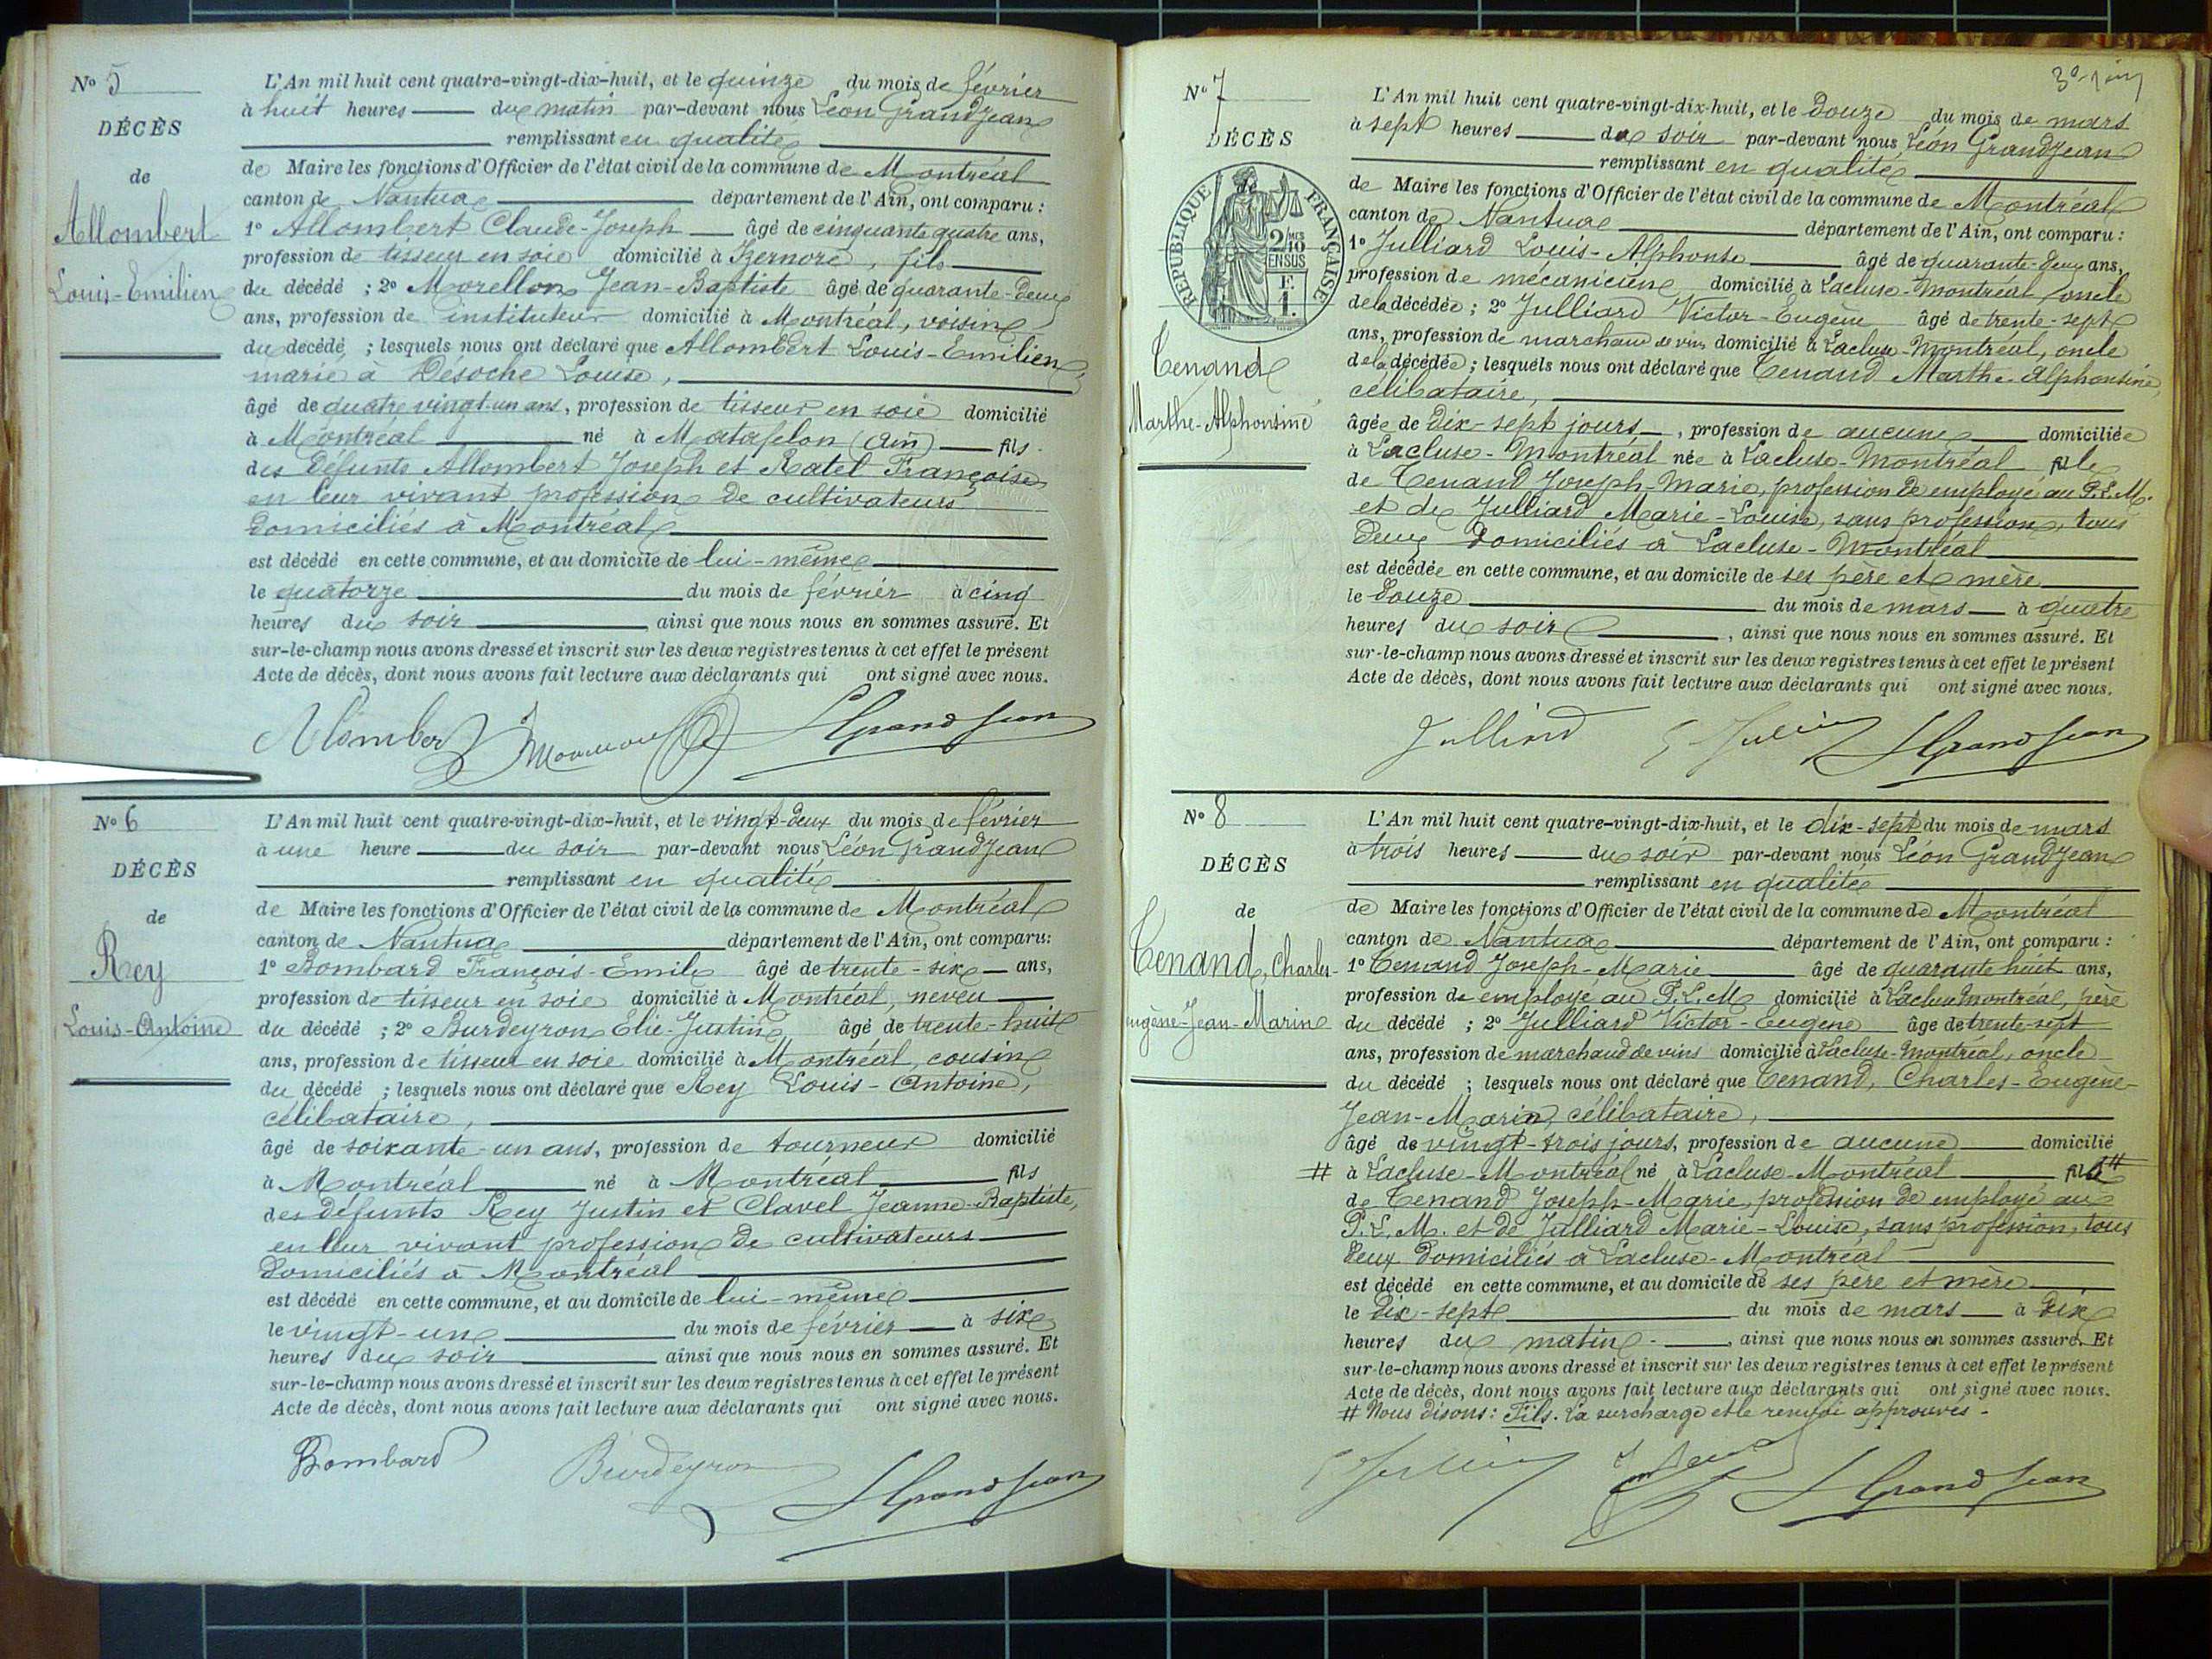 N° 5
DÉCÈS
de
Allombert
Louis-Emilien
L'An mil huit cent quatre-vingt-dix-huit, et le quinze du mois de février
à huit heures du matin par-devant nous Léon Grandjean
remplissant en qualité
de Maire les fonctions d'Officier de l'état civil de la commune de Montréal
canton de Nantua département de l'Ain, ont comparu :
1° Allombert Claude-Joseph âgé de cinquante quatre ans,
profession de tisseur en soie domicilié à Izernore, fils
du décédé ; 2° Morellon Jean-Baptiste âgé de quarante-deux
ans, profession de instituteur domicilié à Montréal, voisin
du décédé ; lesquels nous ont déclaré que Allombert Louis-Emilien,
marié à Désoche Louise,
âgé de quatre vingt-un ans, profession de tisseur en soie domicilié
à Montréal né à Matafelon (Ain) fils
des défunts Allombert Joseph et Ratel Françoise
en leur vivant profession de cultivateurs
domiciliés à Montréal
est décédé en cette commune, et au domicile de lui-même
le quatorze du mois de février à cinq
heures du soir ainsi que nous nous en sommes assuré. Et
sur-le-champ nous avons dressé et inscrit sur les deux registres tenus à cet effet le présent
Acte de décès, dont nous avons fait lecture aux déclarants qui ont signé avec nous.
Allombert LGrandjean
N° 6
DÉCÈS
de
Rey
Louis-Antoine
L'An mil huit cent quatre-vingt-dix-huit, et le vingt-deux du mois de février
à une heure du soir par-devant nous Léon Grandjean
remplissant en qualité
de Maire les fonctions d'Officier de l'état civil de la commune de Montréal
canton de Nantua département de l'Ain, ont comparu:
1° Bombard François-Emile âgé de trente-six ans,
profession de tisseur en soie domicilié à Montréal, neveu
du décédé ; 2° Burdeyron Elie-Justin âgé de trente-huit
ans, profession de tisseur en soie domicilié à Montréal, cousin
du décédé ; lesquels nous ont déclaré que Rey Louis-Antoine,
célibataire,
âgé de soixante-un ans, profession de tourneur domicilié
à Montréal né à Montréal fils
des défunts Rey Justin et Clavel Jeanne-Baptiste,
en leur vivant profession de cultivateurs
domiciliés à Montréal
est décédé en cette commune, et au domicile de lui-même
le vingt-un du mois de février à six
heures du soir ainsi que nous nous en sommes assuré. Et
sur-le-champ nous avons dressé et inscrit sur les deux registres tenus à cet effet le présent
Acte de décès, dont nous avons fait lecture aux déclarants qui ont signé avec nous.
Bombard Burdeyron LGrandjean
N° 7
DÉCÈS
RÉPUBLIQUE FRANÇAISE
2/10 MES
EN SUS
F.
1.
Tenand
Marthe-Alphonsine
L'An mil huit cent quatre-vingt-dix-huit, et le douze du mois de mars
à sept heures du soir par-devant nous Léon Grandjean
remplissant en qualité
de Maire les fonctions d'Officier de l'état civil de la commune de Montréal
canton de Nantua département de l'Ain, ont comparu :
1° Julliard Louis-Alphonse âgé de quarante-deux ans,
profession de mécanicien domicilié à Lacluse-Montréal oncle
de la décédée ; 2° Julliard Victor-Eugène âgé de trente-sept
ans, profession de marchand de vins domicilié à Lacluse-Montréal, oncle
de la décédée ; lesquels nous ont déclaré que Tenand Marthe-Alphonsine,
célibataire,
âgée de dix-sept jours, profession de aucune domiciliée
à Lacluse-Montréal née à Lacluse-Montréal fille
de Tenand Joseph-Marie, profession de employé au P.L.M.
et de Julliard Marie-Louise, sans profession, tous
deux domiciliés à Lacluse-Montréal
est décédée en cette commune, et au domicile de ses père et mère
le douze du mois de mars à quatre
heures du soir, ainsi que nous nous en sommes assuré. Et
sur-le-champ nous avons dressé et inscrit sur les deux registres tenus à cet effet le présent
Acte de décès, dont nous avons fait lecture aux déclarants qui ont signé avec nous.
LGrandjean
N° 8
DÉCÈS
de
Tenand, Charles-
Eugène-Jean-Marin
L'An mil huit cent quatre-vingt-dix-huit, et le dix-sept du mois de mars
à trois heures du soir par-devant nous Léon Grandjean
remplissant en qualité
de Maire les fonctions d'Officier de l'état civil de la commune de Montréal
canton de Nantua département de l'Ain, ont comparu :
1° Tenand Joseph-Marie âgé de quarante huit ans,
profession de employé au P.L.M. domicilié à Lacluse Montréal, père
du décédé ; 2° Julliard Victor-Eugène âgé de trente-sept
ans, profession de marchand de vins domicilié à Lacluse-Montréal, oncle
du décédé ; lesquels nous ont déclaré que Tenand, Charles-Eugène-
Jean-Marin, célibataire,
âgé de vingt-trois jours, profession de aucune domicilié
# à Lacluse-Montréal né à Lacluse-Montréal fils #
de Tenand Joseph-Marie, profession de employé au
P.L.M. et de Julliard Marie-Louise, sans profession, tous
deux domiciliés à Lacluse-Montréal
est décédé en cette commune, et au domicile de ses père et mère
le dix-sept du mois de mars à dix
heures du matin, ainsi que nous nous en sommes assuré. Et
sur-le-champ nous avons dressé et inscrit sur les deux registres tenus à cet effet le présent
Acte de décès, dont nous avons fait lecture aux déclarants qui ont signé avec nous.
# Nous disons : Fils. La surcharge et le renvoi approuvés.
LGrandjean